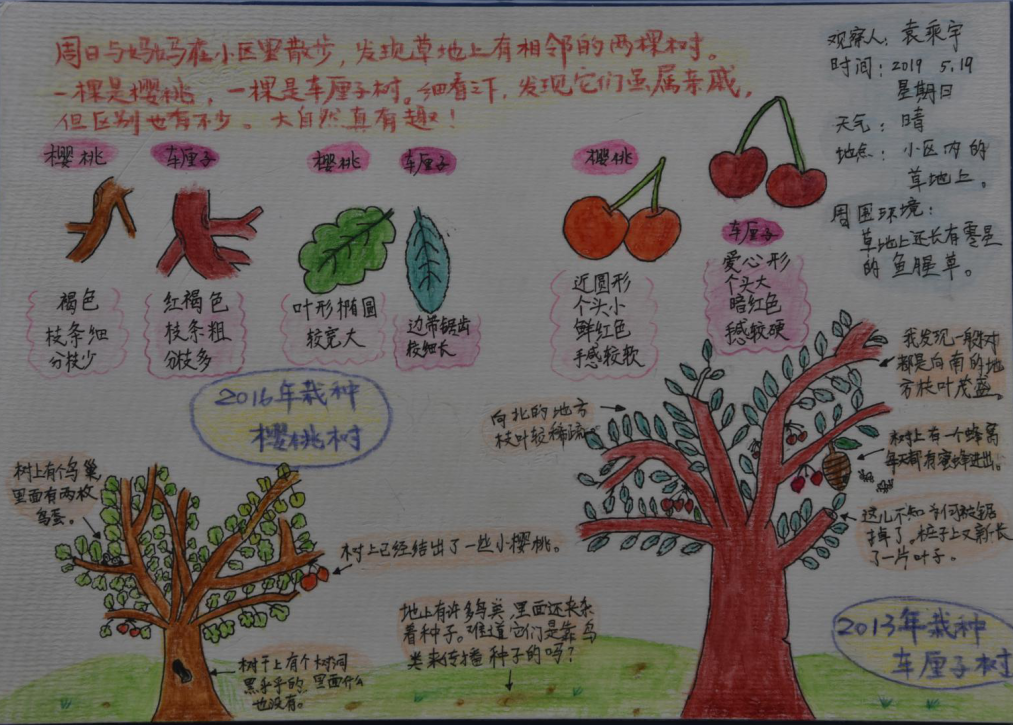 周日与妈妈在小区里散步，发现草地上有相邻的两棵树。
一棵是樱桃，一棵是车厘子树。细看之下，发现它们虽属亲戚，
但区别也有不少。大自然真有趣！
观察人：袁乘宇
时间：2019 5.19
星期日
天气：晴
地点：小区内的
草地上。
周围环境：
草地上还长有零星
的鱼腥草。
樱桃
车厘子
樱桃
车厘子
樱桃
车厘子
褐色
枝条细
分枝少
红褐色
枝条粗
分枝多
叶形椭圆
较宽大
边带锯齿
较细长
近圆形
个头小
鲜红色
手感较软
爱心形
个头大
暗红色
手感较硬
2016年栽种
樱桃树
向北的地方
枝叶较稀疏
我发现一般树
都是向南的地
方枝叶茂盛。
树上有一个蜂窝
每天都有蜜蜂进出。
这儿不知为何被锯
掉了。桩子上又新长
了一片叶子。
树上有个鸟巢
里面有两枚
鸟蛋。
树上已经结出了一些小樱桃。
地上有许多鸟粪，里面还夹杂
着种子。难道它们是靠鸟
类来传播种子的吗？
树干上有个树洞
黑乎乎的，里面什么
也没有。
2013年栽种
车厘子树